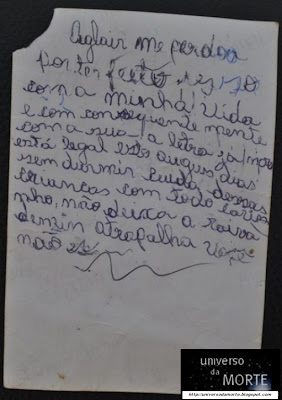 Aglair me perdoa
por ter feito
com a minha vida
e com consequente mente
com a sua a letra já não
está legal esto augus dias
sem dormir cuida dessas
criancas com todo carin
nho, não deixa a raiva
demin atrapalha
não
universo
da
MORTE
http://universodamorte.blogspot.com